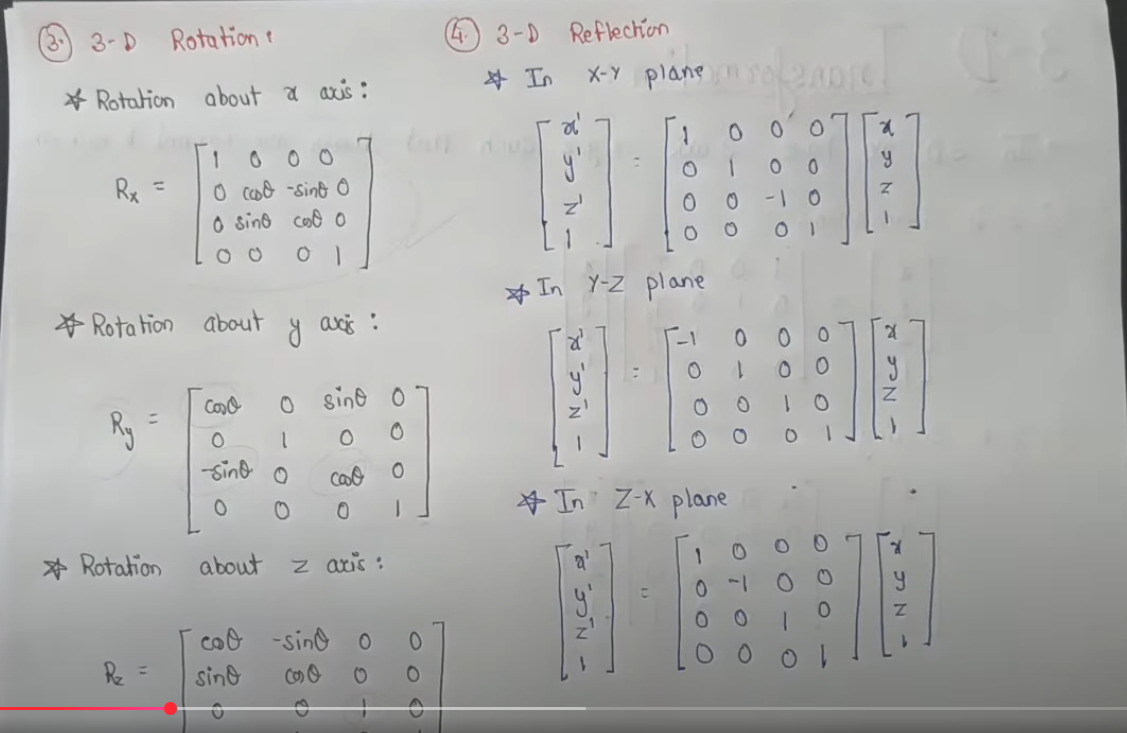 3. 3-D Rotation:
* Rotation about x axis:
Rx = [ 1 0 0 0
0 cosθ -sinθ 0
0 sinθ cosθ 0
0 0 0 1 ]
* Rotation about y axis:
Ry = [ cosθ 0 sinθ 0
0 1 0 0
-sinθ 0 cosθ 0
0 0 0 1 ]
* Rotation about z axis:
Rz = [ cosθ -sinθ 0 0
sinθ cosθ 0 0
0 0 1 0
4. 3-D Reflection
* In X-Y plane
[ x' y' z' 1 ] = [ 1 0 0 0
0 1 0 0
0 0 -1 0
0 0 0 1 ] [ x y z 1 ]
* In Y-Z plane
[ x' y' z' 1 ] = [ -1 0 0 0
0 1 0 0
0 0 1 0
0 0 0 1 ] [ x y z 1 ]
* In Z-X plane
[ x' y' z' 1 ] = [ 1 0 0 0
0 -1 0 0
0 0 1 0
0 0 0 1 ] [ x y z 1 ]